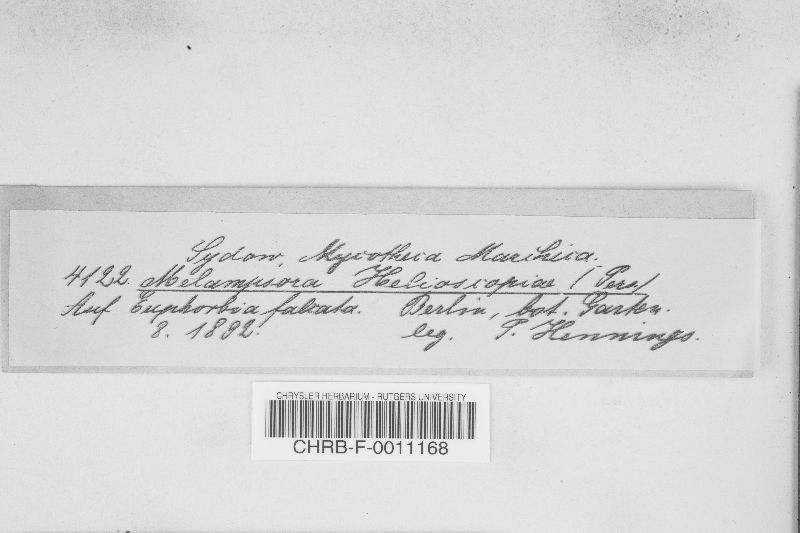 Sydow, Mycotheca Marchica.
4122. Melampsora Helioscopiae (Pers)
Auf Euphorbia falcata. Berlin, bot. Garten.
8. 1892. leg. P. Hennings.
CHRYSLER HERBARIUM - RUTGERS UNIVERSITY
CHRB-F-0011168